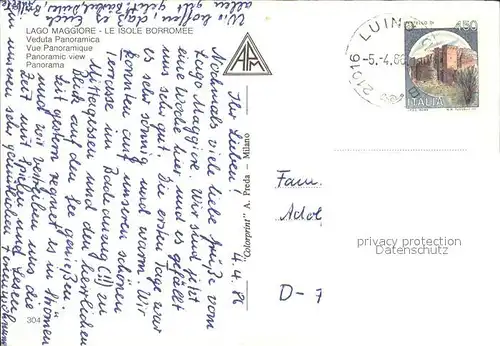 LAGO MAGGIORE - LE ISOLE BORROMEE
Veduta Panoramica
Vue Panoramique
Panoramic view
Panorama
4.4.86
Ihr Lieben!
Nochmals viele liebe Grüße vom
Lago Maggiore. Wir sind jetzt
eine Woche hier und es gefällt
es sehr sonnig und warm. Wir
konnten auf unserem schönen
im Badeanzug (!) zu
Mittagessen und den herrlichen
Blick auf den See genießen.
Seit gestern regnet es in Strömen
und wir vertreiben uns die
Zeit mit Spielen und Lesen
in unserer sehr gemütlichen Ferienwohnung
Wir hoffen, daß es Euch
allen gut geht
304
"Colorprint" A. Preda - Milano
APM
21016 LUINO
-5.-4.86
450
ITALIA
Fam.
Adol
D-7
privacy protection
Datenschutz